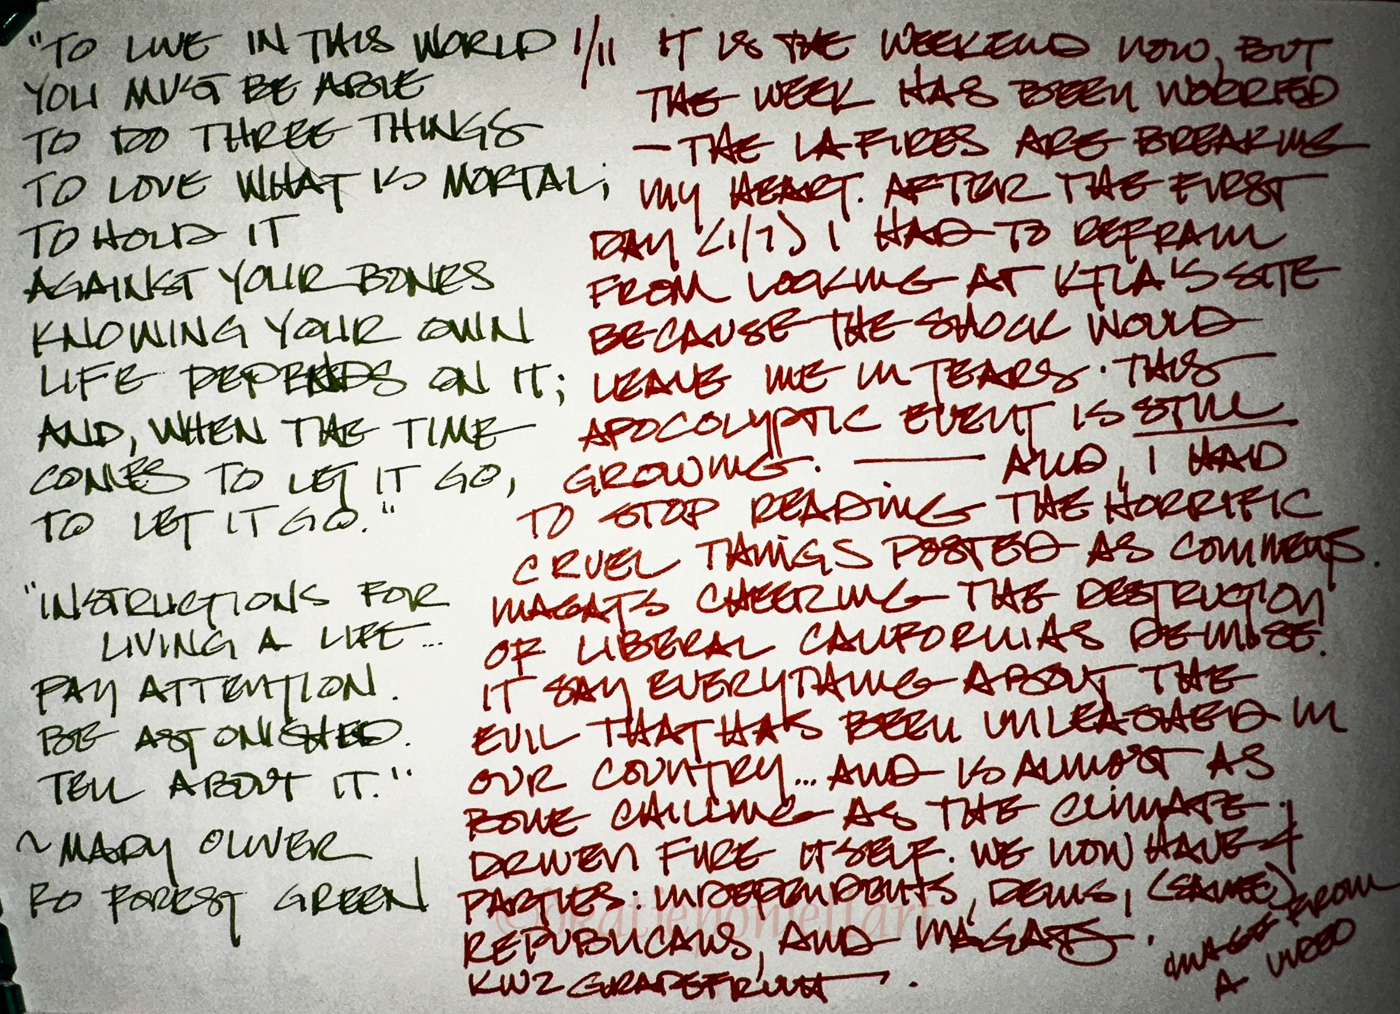 "TO LIVE IN THIS WORLD
YOU MUST BE ABLE
TO DO THREE THINGS
TO LOVE WHAT IS MORTAL;
TO HOLD IT
AGAINST YOUR BONES
KNOWING YOUR OWN
LIFE DEPENDS ON IT;
AND, WHEN THE TIME
COMES TO LET IT GO,
TO LET IT GO."
"INSTRUCTIONS FOR
LIVING A LIFE...
PAY ATTENTION.
BE ASTONISHED.
TELL ABOUT IT."
~MARY OLIVER
RO FOREST GREEN
1/11 IT IS THE WEEKEND NOW, BUT
THE WEEK HAS BEEN WORRIED
— THE LA FIRES ARE BREAKING
MY HEART. AFTER THE FIRST
DAY (1/7) I HAD TO REFRAIN
FROM LOOKING AT KTLA'S SITE
BECAUSE THE SHOCK WOULD
LEAVE ME IN TEARS. THIS
APOCOLYPTIC EVENT IS STILL
GROWING. — AND, I HAD
TO STOP READING THE HORRIFIC
CRUEL THINGS POSTED AS COMMENTS.
MAGATS CHEERING THE DESTRUCTION
OF LIBERAL CALIFORNIAS DEMISE.
IT SAY EVERYTHING ABOUT THE
EVIL THAT HAS BEEN UNLEASHED IN
OUR COUNTRY... AND IS ALMOST AS
BONE CHILLING AS THE CLIMATE
DRIVEN FIRE ITSELF. WE NOW HAVE 4
PARTIES: INDEPENDENTS, DEMS, (SANE)
REPUBLICANS, AND MAGATS.
KWZ GRAPEFRUIT.
IMAGE FROM
A VIDEO